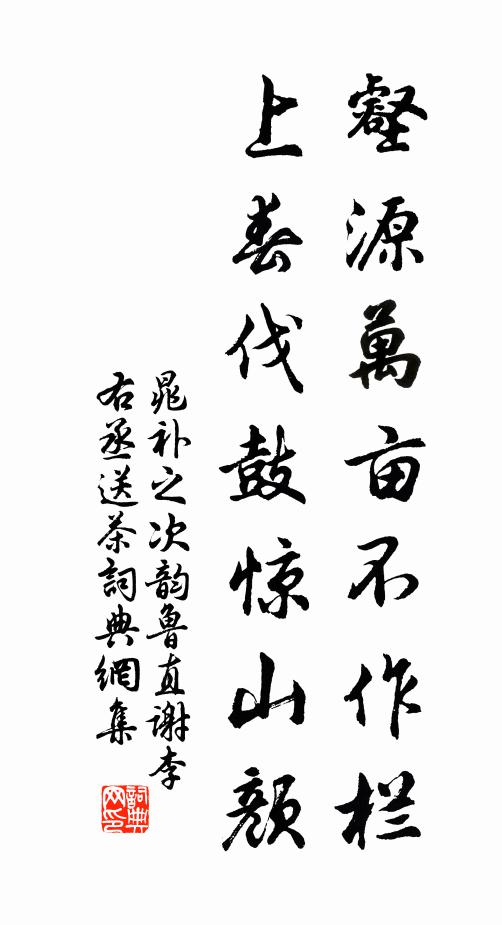 壑源萬亩不作栏
上春伐鼓惊山颜
晁补之次韵魯直谢李
右丞送茶詞典網集
詞典
网印